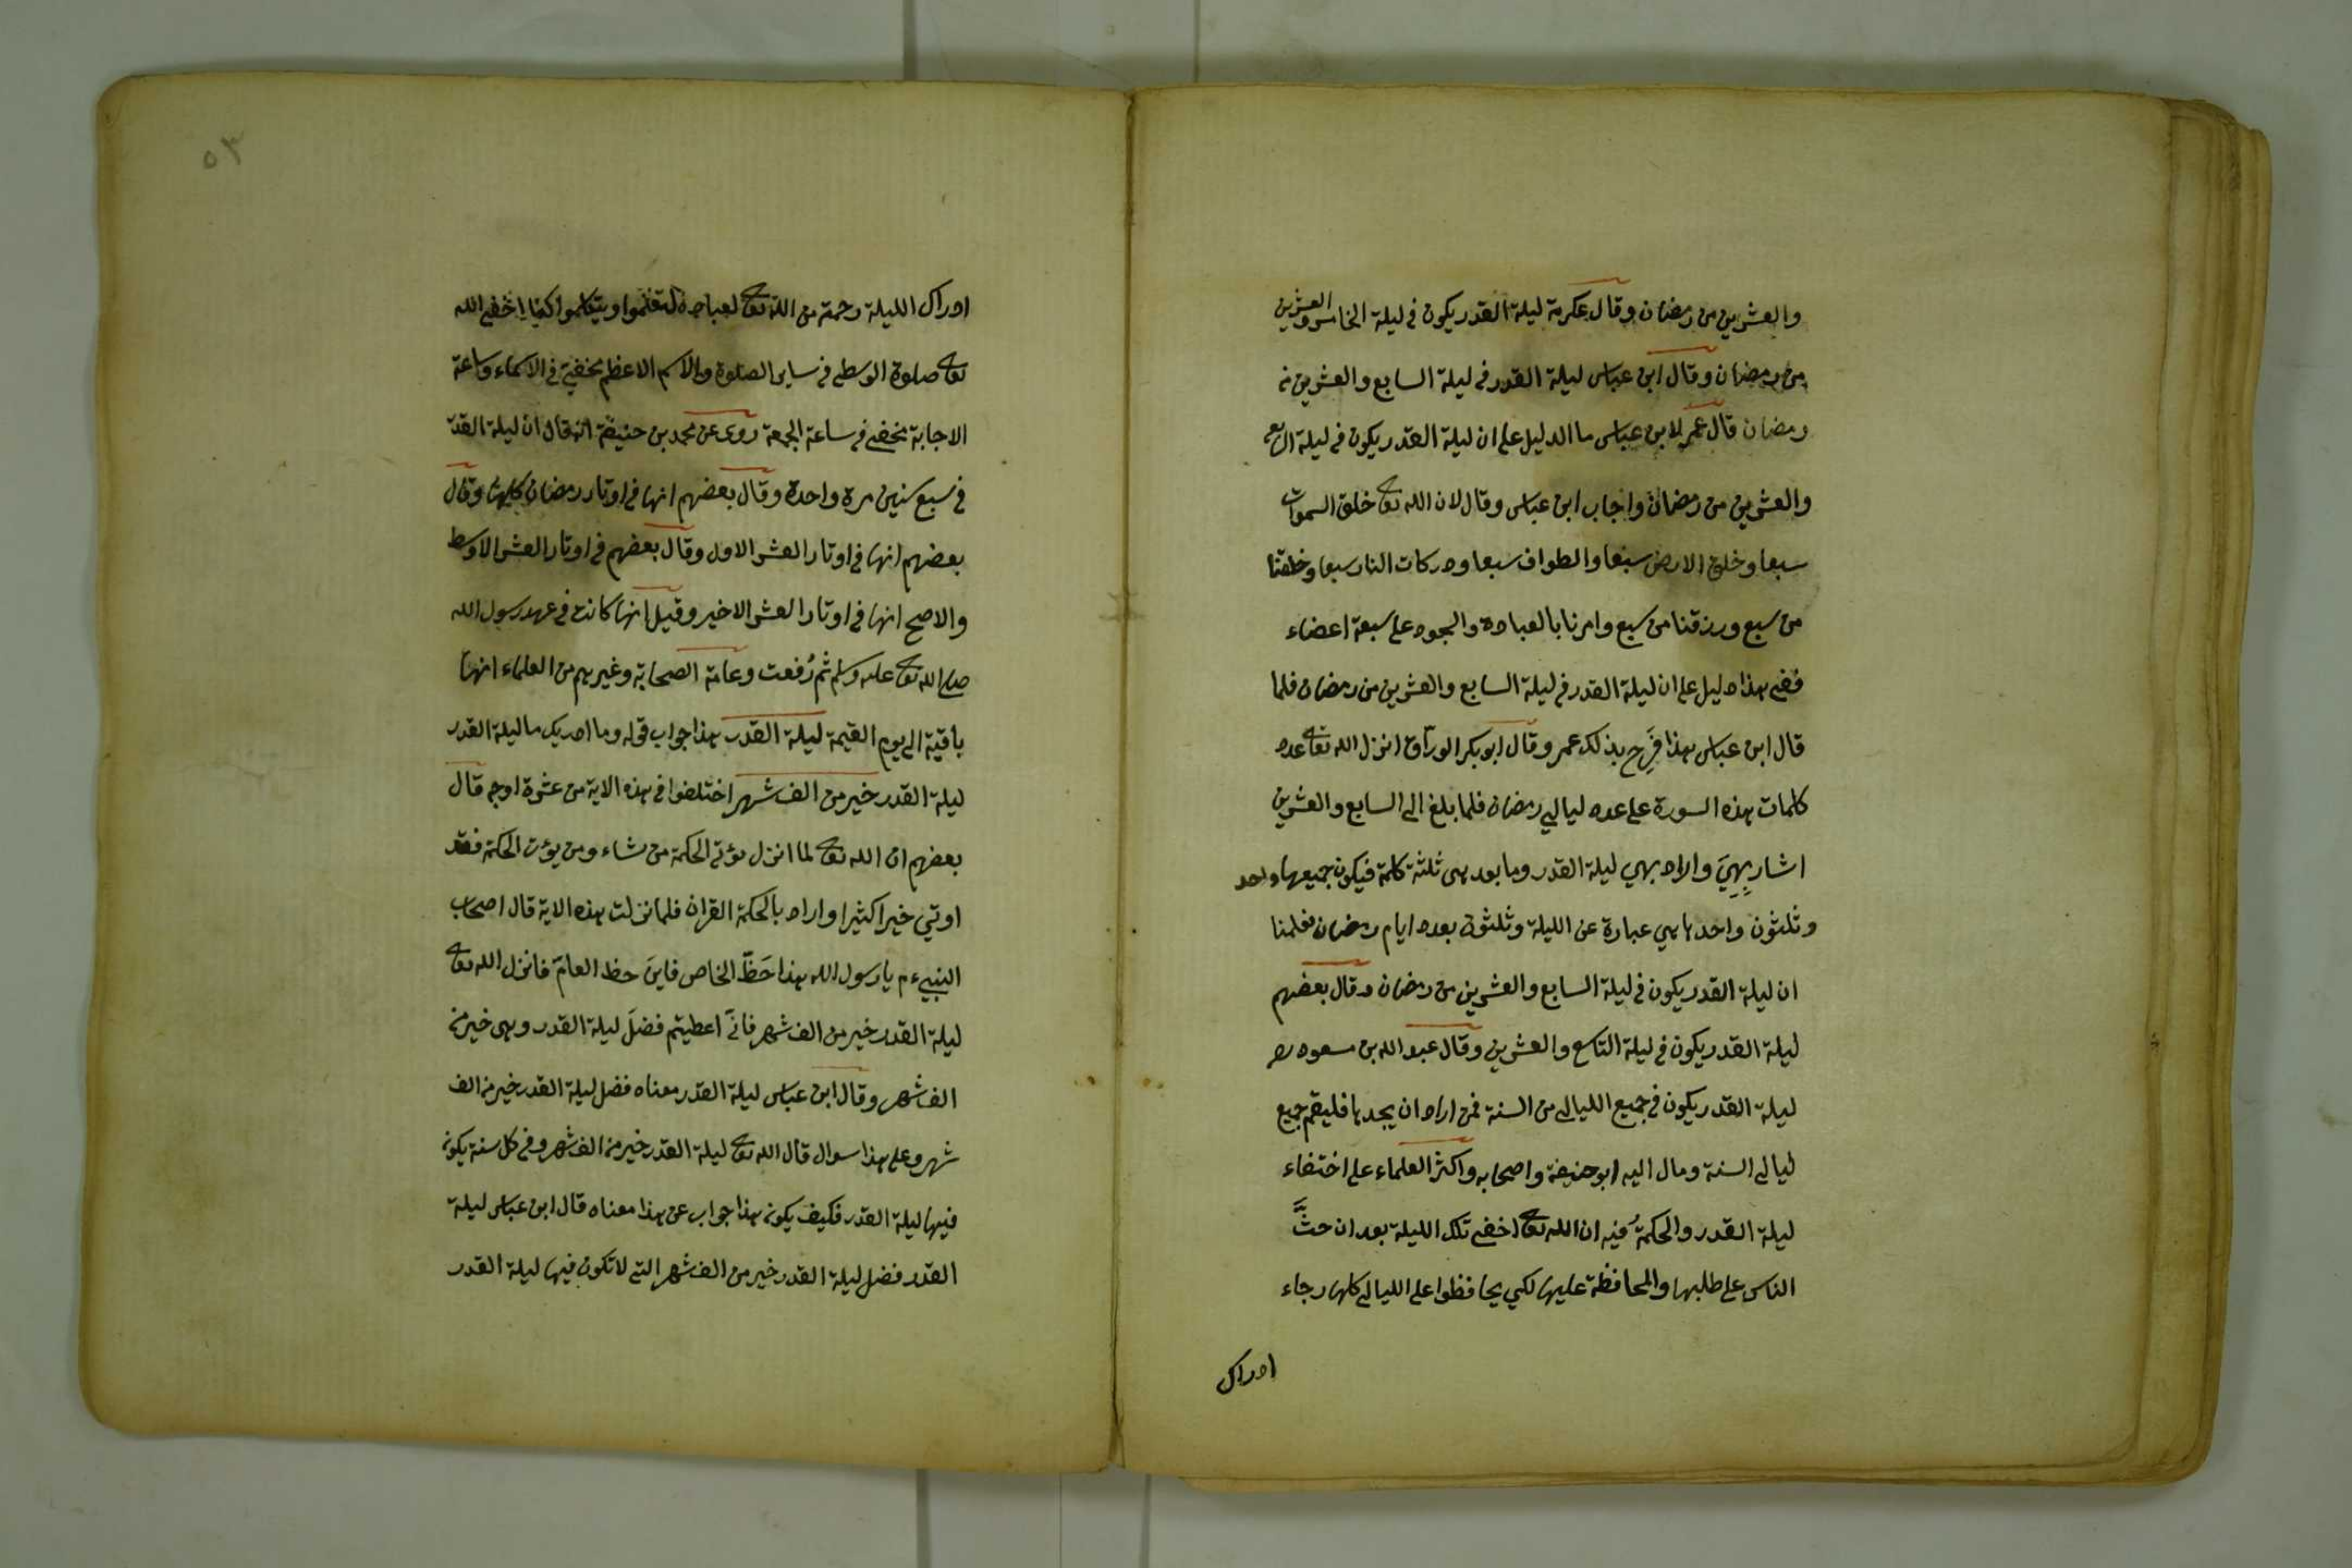 والعشرين من رمضان وقال عكرمة ليلة القدر يكون فى ليلة الخامس والعشرين
من رمضان وقال ابن عباس ليلة القدر فى ليلة السابع والعشرين من
رمضان قال عمر لابن عباس ما الدليل على ان ليلة القدر يكون فى ليلة السابع
والعشرين من رمضان واجاب ابن عباس وقال لان الله تعالى خلق السموات
سبعا وخلق الارض سبعا والطواف سبعا ودركات النار سبعا وخلقنا
من سبع ورزقنا من سبع وامرنا بالعبادة والسجود على سبعة اعضاء
ففى هذا دليل على ان ليلة القدر فى ليلة السابع والعشرين من رمضان فلما
قال ابن عباس هذا فَرِح بذلك عمر وقال ابو بكر الورّاق انزل الله تعالى عدد
كلمات هذه السورة على عدد ليالي رمضان فلما بلغ الى السابع والعشرين
اشار بِهِيَ واراد بهي ليلة القدر وما بعد هى ثلثة كلمة فيكون جميعها واحد
وثلثون واحدها هي عبارة عن الليلة وثلثون بعدد ايام رمضان فعلمنا
ان ليلة القدر يكون فى ليلة السابع والعشرين من رمضان وقال بعضهم
ليلة القدر يكون فى ليلة التاسع والعشرين وقال عبد الله بن مسعود رض
ليلة القدر يكون فى جميع الليالى من السنة فمن اراد ان يجدها فليقم جميع
ليالى السنة ومال اليه ابو حنيفة واصحابه واكثر العلماء على اختفاء
ليلة القدر والحكمةُ فيه ان الله تعالى اخفى تلك الليلة بعد ان حثَّ
الناس على طلبها والمحافظة عليها لكي يحافظوا على الليالى كلها رجاء
ادراك
٥٣
ادراك الليلة رحمة من الله تعالى لعباده ليتعلموا ويتكلموا كما اخفى الله
تعالى صلوة الوسطى فى ساير الصلوة والاسم الاعظم مخفية فى الاسماء وساعة
الاجابة مخفى فى ساعة الجمعة روى عن محمد بن حنيفة انه قال ان ليلة القدر
فى سبع سنين مرة واحدة وقال بعضهم انها فى اوتار رمضان كلها وقال
بعضهم انها فى اوتار العشر الاول وقال بعضهم فى اوتار العشر الاوسط
والاصح انها فى اوتار العشر الاخير وقيل انها كانت فى عهد رسول الله
صلى الله تعالى عليه وسلم ثم رُفعت وعامة الصحابة وغيرهم من العلماء انها
باقية الى يوم القيمة ليلة القدر هذا جواب قوله وما ادريك ما ليلة القدر
ليلة القدر خير من الف شهر اختلفوا فى هذه الاية من عشرة اوجه قال
بعضهم ان الله تعالى لما انزل يؤتى الحكمة من يشاء ومن يؤت الحكمة فقد
اوتي خيرا كثيرا واراد بالحكمة القران فلما نزلت هذه الاية قال اصحاب
النبيء م يا رسول الله هذا حَظّ الخاص فاين حظ العام فانزل الله تعالى
ليلة القدر خير من الف شهر فانّى اعطيتم فضلَ ليلة القدر وهى خير من
الف شهر وقال ابن عباس ليلة القدر معناه فضل ليلة القدر خير من الف
شهر وعلى هذا سوال قال الله تعالى ليلة القدر خير من الف شهر وفى كل سنة يكون
فيها ليلة القدر فكيف يكون هذا جواب عن هذا معناه قال ابن عباس ليلة
القدر فضل ليلة القدر خير من الف شهر التى لا تكون فيها ليلة القدر